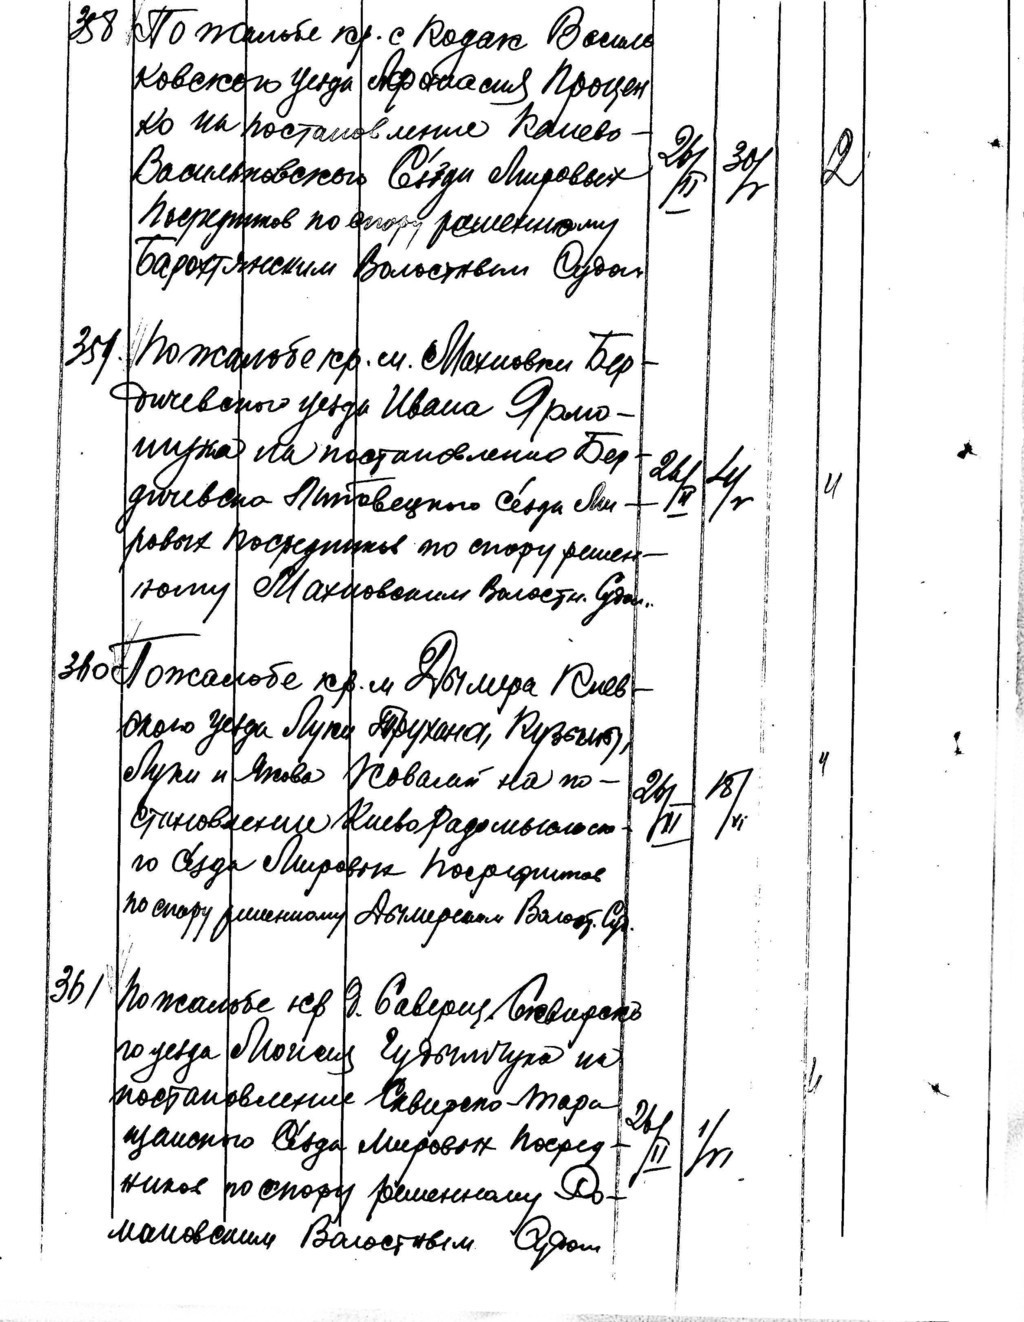 358 По жалобе кр. с Кодак Василь
ковского уезда Афанасия Процен
ко на постановление Канево-
Васильковского Съезда Мировых 26/II 30/V 2
Посредников по спору решенному
Барахтянским Волостным Судом
359. По жалобе кр. м. Махновки Бер-
дичевского уезда Ивана Ярмо-
щука на постановление Бер-
дичевско Липовецкого Съезда Ми- 26/II 4/V 4
ровых Посредников по спору решен-
ному Махновским Волостн. Судом..
360 По жалобе кр. м Дымера Киев-
ского уезда Луки Трухана, Кузьмы,
Луки и Якова Коваля на по- 4
становление Киево Радомысльско- 26/II 18/VI
го Съезда Мировых Посредников
по спору решенному Дымерским Волост. Суд.
361 По жалобе кр д. Саверец, Сквирско
го уезда Моисея на
постановление Сквирско-Тара 4
щанского Съезда Мировых Посред- 26/II 1/VI
ников по спору решенному Ро-
мановским Волостным Судом